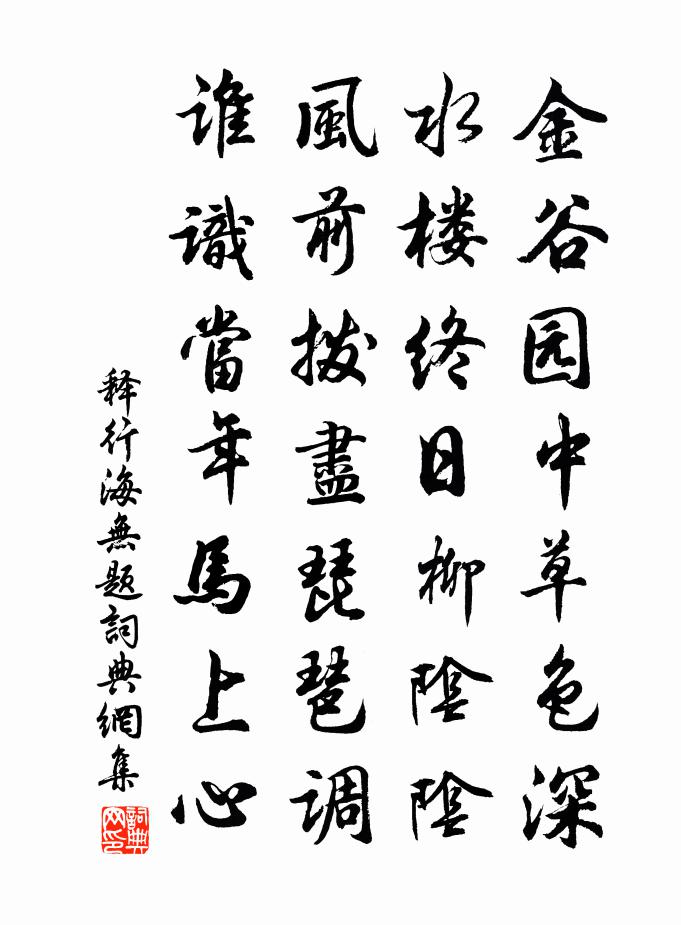 金谷园中草色深
水楼终日柳陰陰
風前拨盡琵琶調
誰識當年馬上心
释行海無题詞典網集
詞典网印